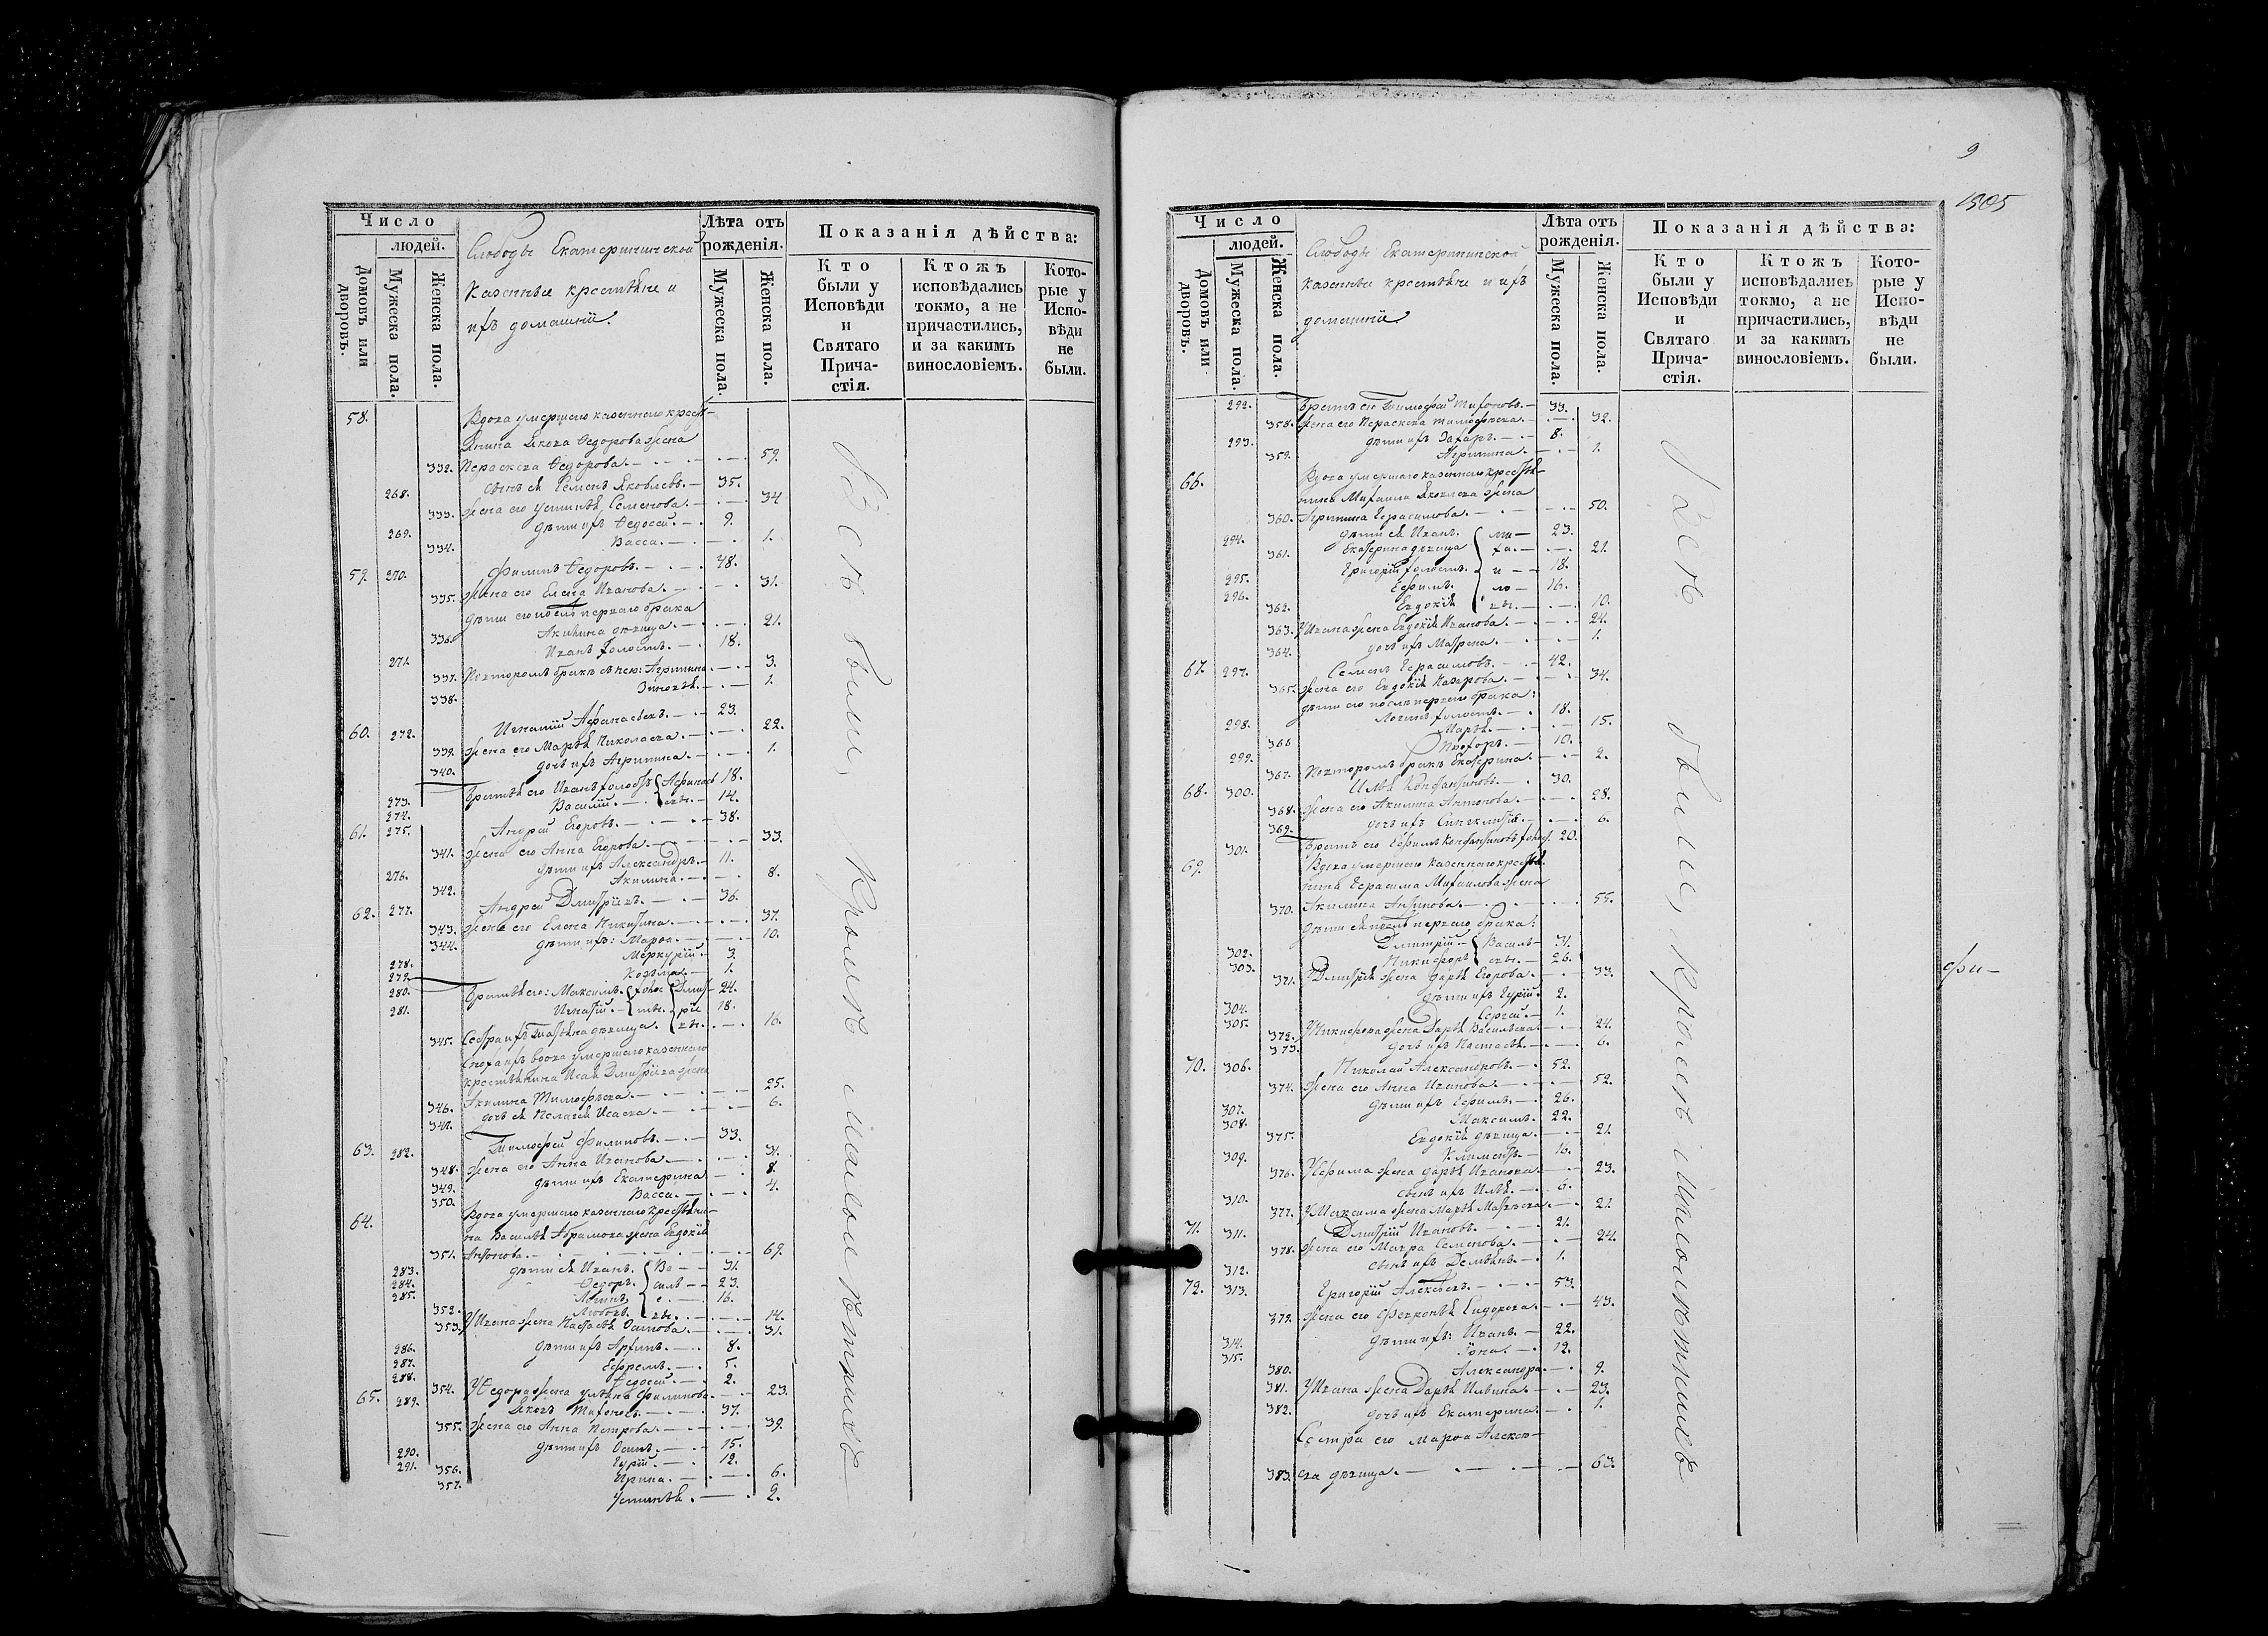 Число
людей.
Домовъ или дворовъ.
Мужеска пола.
Женска пола.
Слободы Екатерининской
казенные крестьяне и
ихъ домашнии.
Лѣта отъ рожденія.
Мужеска пола.
Женска пола.
Показанія дѣйства:
Кто были у Исповѣди и Святаго Прича-стія.
Ктожъ исповѣдались токмо, а не причастились, и за какимъ винословіемъ.
Кото-рые у Испо-вѣди не были.
58. Вдова умершаго казеннаго кресть-
янина Якова Ѳедорова жена
332. Параскева Ѳедорова. 59.
268. сынъ ея Семенъ Яковлевъ. 35.
333. жена его Устинья Семенова. 34
269. дѣти ихъ Ѳедосей. 9.
334. Васса. 1.
59. 270. Филипъ Ѳедоровъ. 48.
335. жена его Елена Иванова. 31.
дѣти его отъ перваго брака
336. Акилина дѣвица. 21.
271. Иванъ холостъ. 18.
337. Повторомъ бракѣ съ нею: Агрипина 3.
338. Зиновья. 1.
60. 272. Игнатий Афанасьевъ. 23.
339. жена его Марья Николаева. 22.
340. дочь ихъ Агрипина. 1.
273. Братья его Иванъ холостъ Афанась 18.
274. Василий. евы. 14.
61. 275. Андрей Егоровъ. 38.
341. жена его Анна Егорова. 33.
276. дѣти ихъ Александръ. 11.
342. Акилина. 8.
62. 277. Андрей Дмитріевъ. 36.
343. жена его Елена Никитина. 37.
344. дѣти ихъ: Марѳа. 10.
278. Меркурий. 3.
279. Козьма. 1.
280. Братья его: Максимъ. холос Дмит 24.
281. Игнатий. ты. рiе 18.
345. Сестра ихъ Татьяна дѣвица. вы. 16.
Сноха ихъ вдова умершаго казеннаго
крестьянина Исая Дмитріева жена
346. Акилина Тимофѣева. 25.
347. дочь ея Пелагея Исаева. 6.
63. 282. Тимофей Филиповъ. 33.
348. жена его Анна Иванова. 31.
349. дѣти ихъ Екатерина 8.
350. Васса. 4.
64. Вдова умершаго казеннаго крестьяни-
на Василья Абрамова жена Евдокія
351. Антонова. 69.
283. дѣти ея Иванъ. Ва 31.
284. Ѳедоръ. силь 23.
285. е. 16.
352. Любовь. вы. 14.
353. У Ивана жена Настасья Осипова. 31.
286. дѣти ихъ Архипъ. 8.
287. Ефремъ. 5.
288. Ѳедосей. 2.
354. У Ѳедора жена Ульяна Филипова. 23.
65. 289. Яковъ Тихоновъ. 37.
355. жена его Анна Петрова. 39.
290. дѣти ихъ Осипъ. 15.
291. Гурій. 12.
356. Ирина. 6.
357. Устинья. 2.
Всѣ были, кромѣ малолѣтныхъ
9
1505
Число
людей.
Домовъ или дворовъ.
Мужеска пола.
Женска пола.
Слободы Екатерининской
казенные крестьяне и ихъ
домашнии.
Лѣта отъ рожденія.
Мужеска пола.
Женска пола.
Показанія дѣйства:
Кто были у Исповѣди и Святаго Прича-стія.
Ктожъ исповѣдались токмо, а не причастились, и за какимъ винословіемъ.
Кото-рые у Испо-вѣди не были.
292. Братъ его Тимофей Тихоновъ. 33.
358. жена его Параскева Тимофѣева. 32.
293. дѣти ихъ Захаръ. 8.
359. Агрипина. 1.
66. Вдова умершаго казеннаго крестья-
нина Михаила Яковлева жена
360. Агрипина Герасимова. 50.
294. дѣти ея Иванъ. ми 23.
361. Екатерина дѣвица ха. 21.
295. Григорій холостъ. и 18.
296. Ефимъ. ло 16.
362. Евдокія вы. 10.
363. У Ивана жена Евдокія Иванова. 24.
364. дочь ихъ Матрена. 1.
67. 297. Семенъ Герасимовъ. 42.
365. жена его Евдокія Назарова. 34.
дѣти его послѣ перваго брака:
298. Логинъ холостъ. 18.
366 Марья. 15.
299. Прохоръ. 10.
367. Повторомъ бракѣ Екатерина. 2.
68. 300. Илья Константиновъ. 30.
368. жена его Акилина Антонова. 28.
369. дочь ихъ Синклитія. 6.
301. Братъ его Ефимъ Константиновъ холост. 20.
69. Вдова умершаго казеннаго крестья-
нина Герасима Михаилова жена
370. Акилина Антонова. 55.
дѣти ея послѣ перваго брака:
302. Дмитрій. Василь 31.
303. Никифоръ евы. 26.
371. У Дмитрія жена Дарья Егорова. 33.
304. дѣти ихъ Гурій. 2.
305. Сергей. 1.
372. У Никифора жена Дарья Васильева. 24.
373. дочь ихъ Настасья. 6.
70. 306. Николай Александровъ. 52.
374. жена его Анна Иванова. 52.
307. дѣти ихъ Ефимъ. 26.
308. Максимъ. 22.
375. Евдокія дѣвица. 21.
309. Климентъ. 16.
376. У Ефима жена Дарья Иванова. 23.
310. сынъ ихъ Илья. 6.
377. У Максима жена Марья Матвѣева. 21.
71. 311. Дмитрій Ивановъ. 21.
378. жена его Мавра Семенова. 24.
312. сынъ ихъ Демьянъ. 1.
72. 313. Григорій Алексѣевъ. 53.
379. жена его Февронья Сидорова. 43.
314. дѣти ихъ: Иванъ. 22.
315. Іона. 12.
380. Александра. 9.
381. У Ивана жена Дарья Ильина. 23.
382. дочь ихъ Екатерина. 1.
Сестра его Марѳа Алексѣ-
383. ева дѣвица. 63.
Всѣ были, кромѣ малолѣтныхъ
фи-